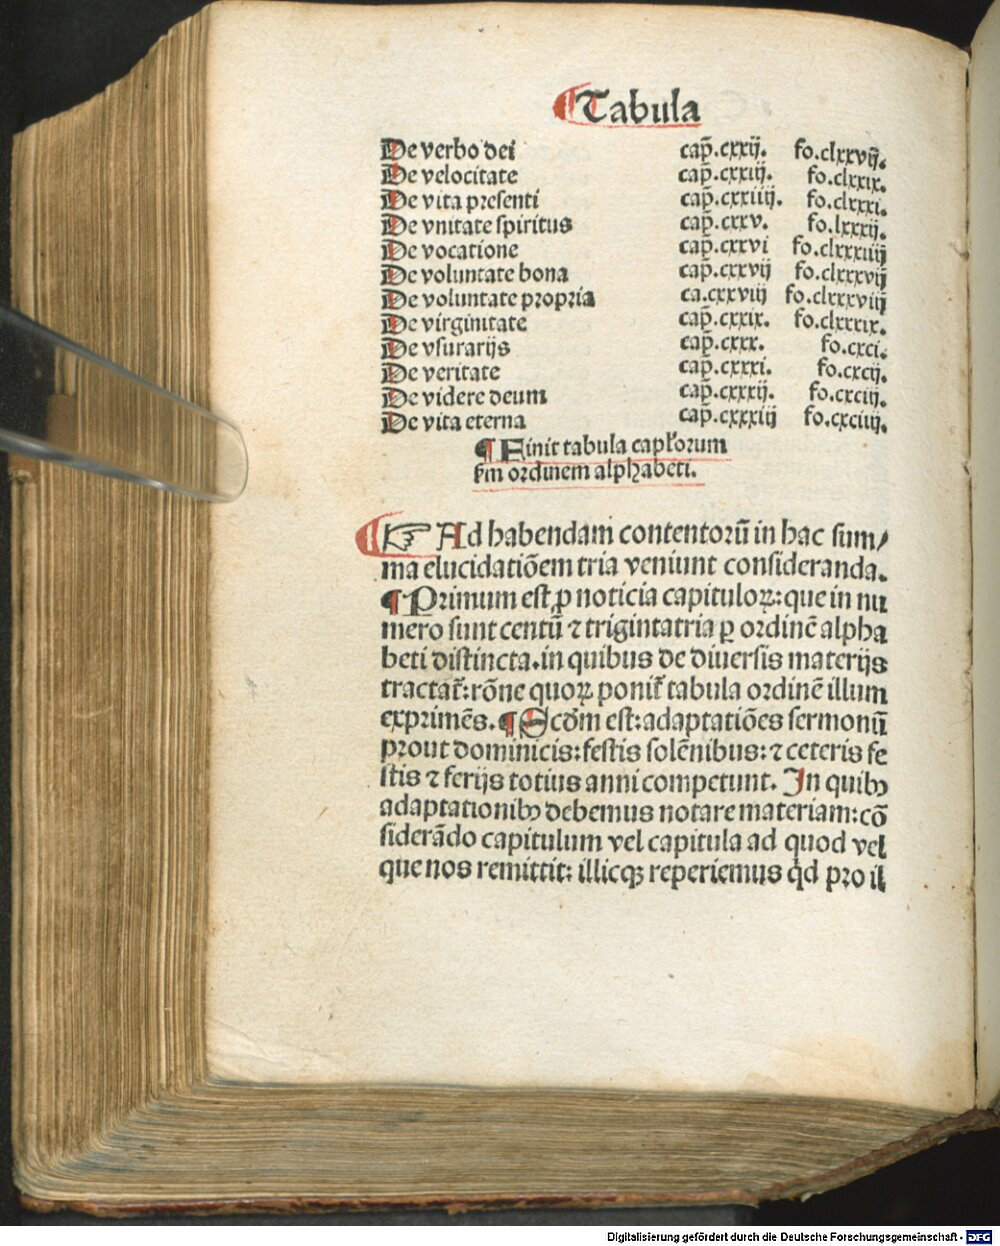 ¶Tabula
De verbo dei cap̄.cxxij. fo.clxxvij.
De velocitate cap̄.cxxiij. fo.clxxix.
De vita presenti cap̄.cxxiiij. fo.clxxxi.
De vnitate spiritus cap̄.cxxv. fo.lxxxij.
De vocatione cap̄.cxxvi fo.clxxxiiij
De voluntate bona cap̄.cxxvij fo.clxxxvij
De voluntate propria ca.cxxviij fo.clxxxviij
De virginitate cap̄.cxxix. fo.clxxxix.
De vsurarijs cap̄.cxxx. fo.cxci.
De veritate cap̄.cxxxi. fo.cxcij.
De videre deum cap̄.cxxxij. fo.cxciij.
De vita eterna cap̄.cxxxiij fo.cxciiij.
¶ Finit tabula capl'orum
ẜm ordinem alphabeti.
¶☞ Ad habendam contentorū in hac sum/
ma elucidatiōem tria veniunt consideranda.
¶ Primum est ꝓ noticia capituloꝝ: que in nu
mero sunt centū ⁊ trigintatria ꝑ ordinē alpha
beti distincta.in quibus de diuersis materijs
tractat᷑: rōne quoꝝ ponit᷑ tabula ordinē illum
exprimēs. ¶ Scd̄m est: adaptatiōes sermonū
prout dominicis: festis solēnibus: ⁊ ceteris fe
stis ⁊ ferijs totius anni competunt. In quibꝰ
adaptationibꝰ debemus notare materiam: cō
siderādo capitulum vel capitula ad quod vel
que nos remittit: illicqꝫ reperiemus qd̄ pro il